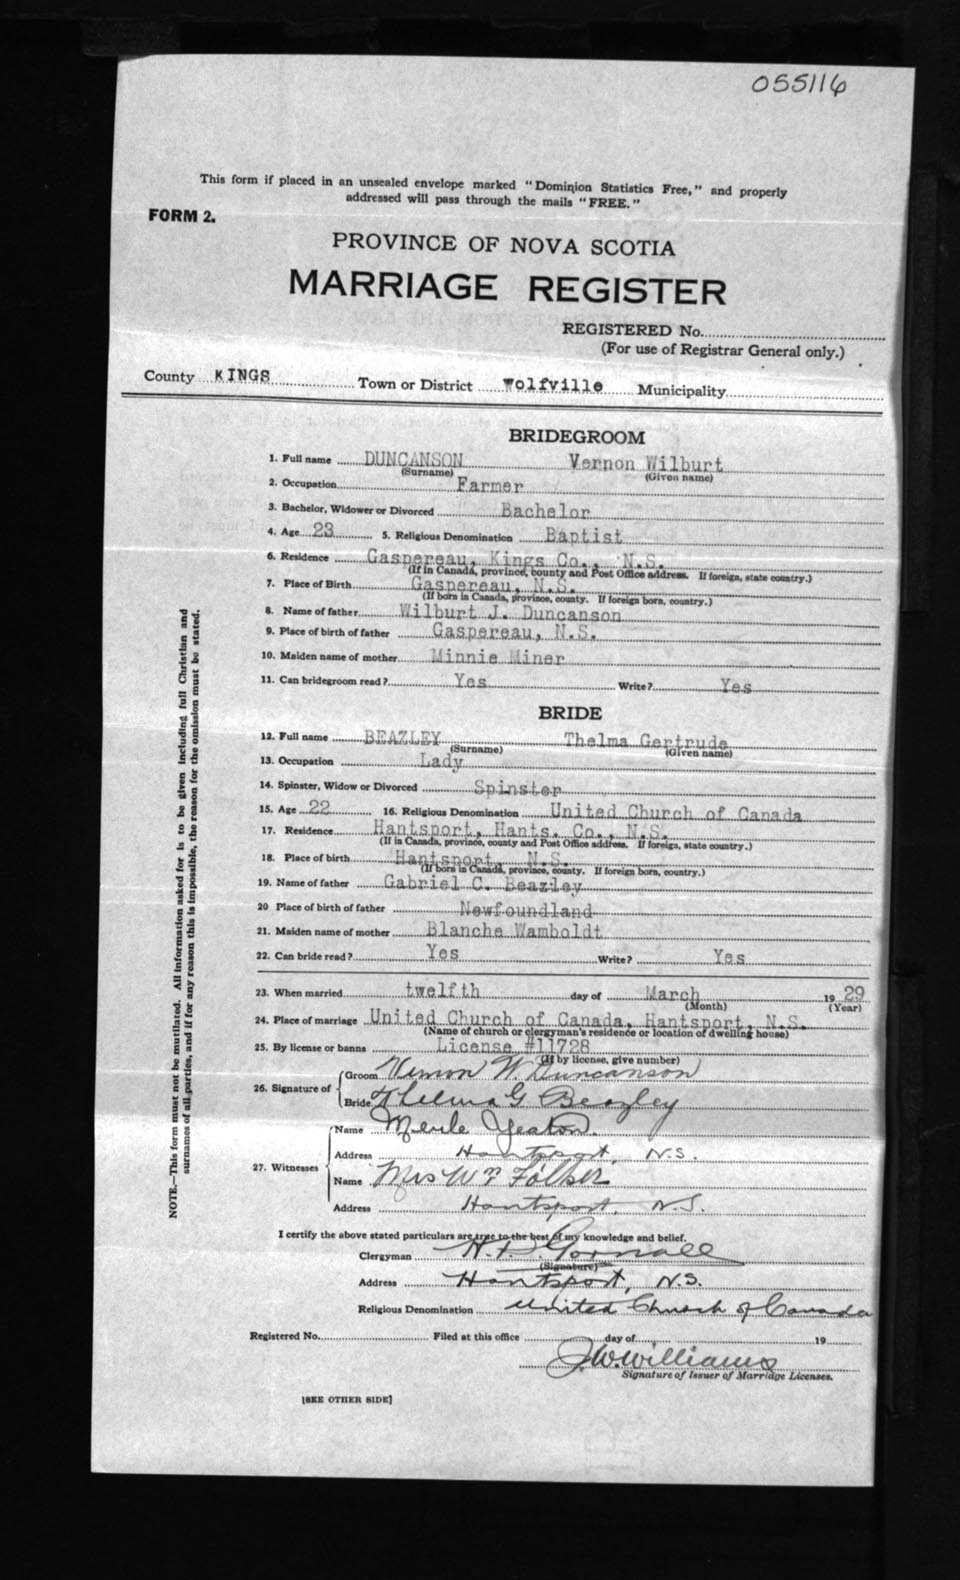 055116
This form if placed in an unsealed envelope marked "Dominion Statistics Free," and properly
addressed will pass through the mails "FREE."
FORM 2.
PROVINCE OF NOVA SCOTIA
MARRIAGE REGISTER
REGISTERED No.
(For use of Registrar General only.)
County KINGS Town or District Wolfville Municipality
BRIDEGROOM
1. Full name DUNCANSON Vernon Wilburt
(Surname) (Given name)
2. Occupation Farmer
3. Bachelor, Widower or Divorced Bachelor
4. Age 23 5. Religious Denomination Baptist
6. Residence Gaspereau, Kings Co., N.S.
(If in Canada, province, county and Post Office address. If foreign, state country.)
7. Place of Birth Gaspereau, N.S.
(If born in Canada, province, county. If foreign born, country.)
8. Name of father Wilburt J. Duncanson
9. Place of birth of father Gaspereau, N.S.
10. Maiden name of mother Minnie Miner
11. Can bridegroom read? Yes Write? Yes
BRIDE
12. Full name BEAZLEY Thelma Gertrude
(Surname) (Given name)
13. Occupation Lady
14. Spinster, Widow or Divorced Spinster
15. Age 22 16. Religious Denomination United Church of Canada
17. Residence Hantsport, Hants. Co., N.S.
(If in Canada, province, county and Post Office address. If foreign, state country.)
18. Place of birth Hantsport, N.S.
(If born in Canada, province, county. If foreign born, country.)
19. Name of father Gabriel C. Beazley
20 Place of birth of father Newfoundland
21. Maiden name of mother Blanche Wamboldt
22. Can bride read? Yes Write? Yes
23. When married twelfth day of March 19 29
(Month) (Year)
24. Place of marriage United Church of Canada, Hantsport, N.S.
(Name of church or clergyman's residence or location of dwelling house)
25. By license or banns License #11728
(If by license, give number)
26. Signature of
Groom Vernon W. Duncanson
Bride Thelma G Beazley
27. Witnesses
Name Merle Yeaton.
Address Hantsport, N.S.
Name Mrs Wm Folker
Address Hantsport, N.S.
I certify the above stated particulars are true to the best of my knowledge and belief.
Clergyman Gornall
(Signature)
Address Hantsport, N.S.
Religious Denomination United Church of Canada
Registered No. Filed at this office day of 19
J.W. Williams
Signature of Issuer of Marriage Licenses.
[SEE OTHER SIDE]
NOTE.—This form must not be mutilated. All information asked for is to be given including full Christian and
surnames of all parties, and if for any reason this is impossible, the reason for the omission must be stated.